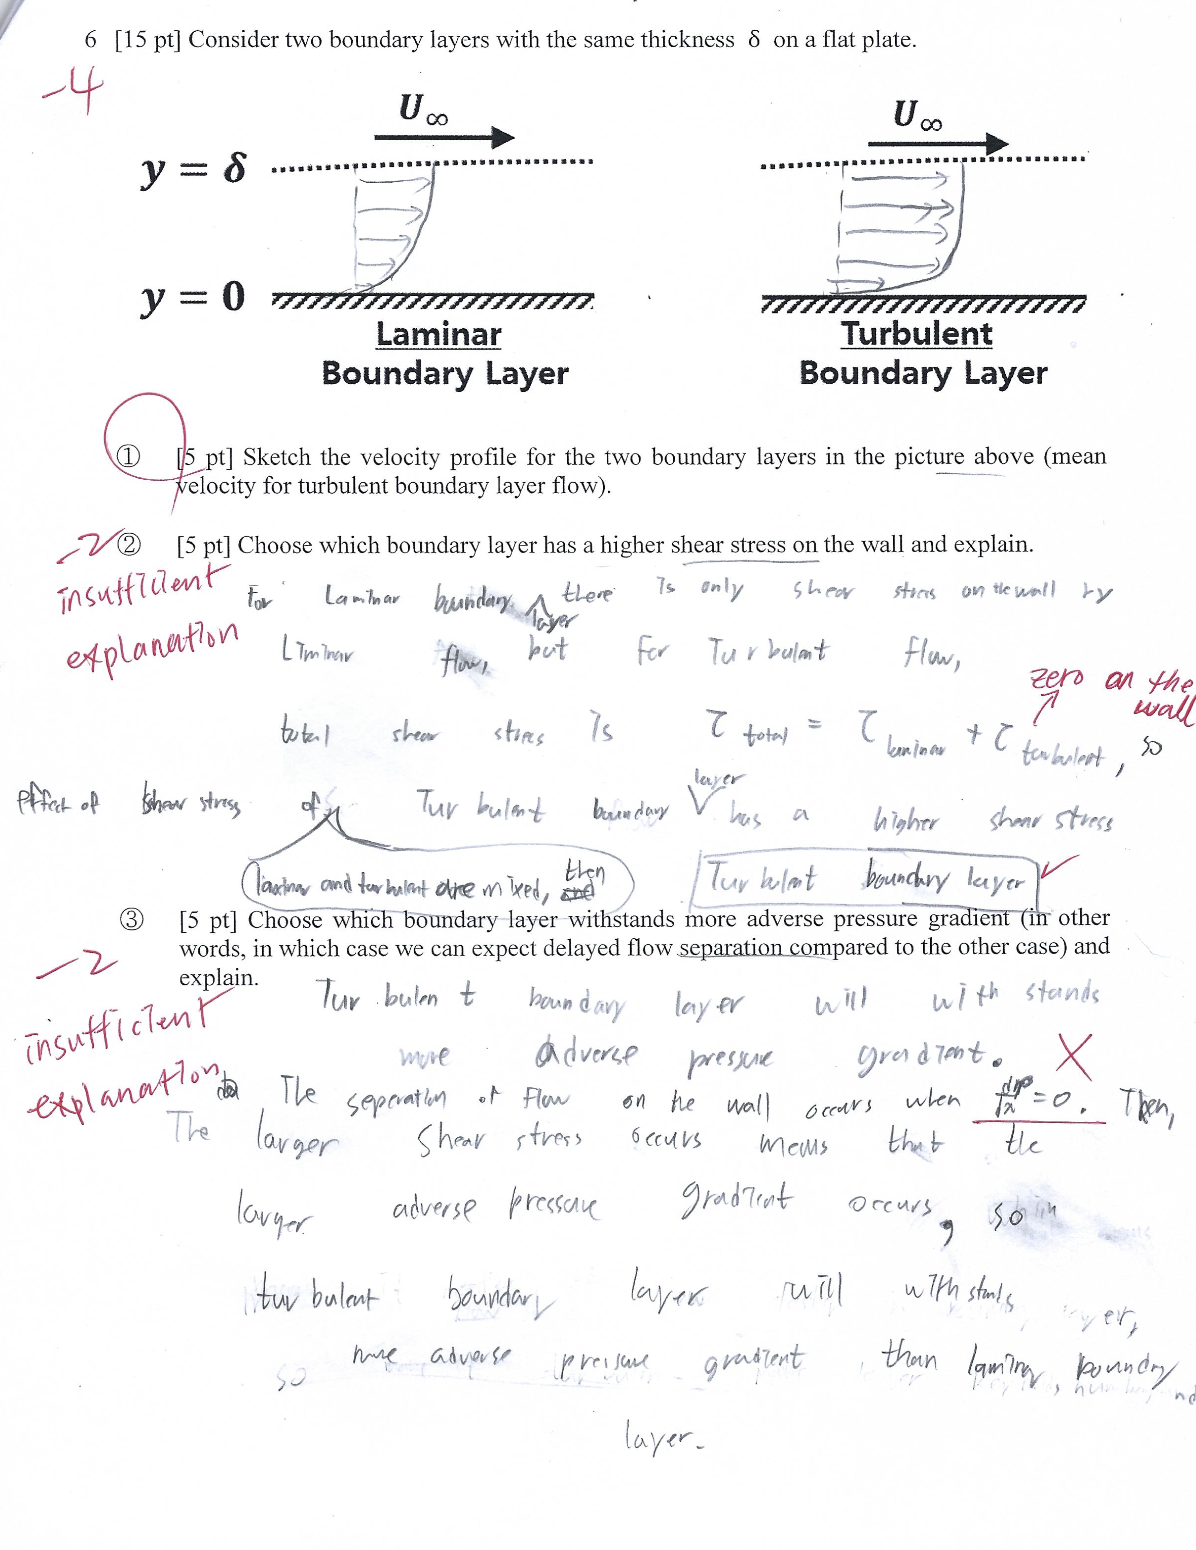 6 [15 pt] Consider two boundary layers with the same thickness δ on a flat plate.
-4
U∞
U∞
y = δ
y = 0
Laminar
Boundary Layer
Turbulent
Boundary Layer
① [5 pt] Sketch the velocity profile for the two boundary layers in the picture above (mean
velocity for turbulent boundary layer flow).
-2 ② [5 pt] Choose which boundary layer has a higher shear stress on the wall and explain.
insufficient
explanation
For Laminar boundary layer there is only shear stress on the wall by
Liminar flow, but for Turbulent flow,
zero on the
wall
total shear stress is τ total = τ laminar + τ turbulent, so
effect of shear stress of Turbulent boundary layer has a higher shear stress
laminar and turbulent are mixed, then
Turbulent boundary layer
③ [5 pt] Choose which boundary layer withstands more adverse pressure gradient (in other
words, in which case we can expect delayed flow separation compared to the other case) and
explain.
-2
insufficient
explanation
Turbulent boundary layer will withstands
more adverse pressure gradient. X
The seperation of flow on the wall occurs when dp/dx = 0. Then,
The larger shear stress occurs means that the
larger adverse pressure gradient occurs, so
turbulent boundary layer will withstands
more adverse pressure gradient than laminar boundry
so
layer.